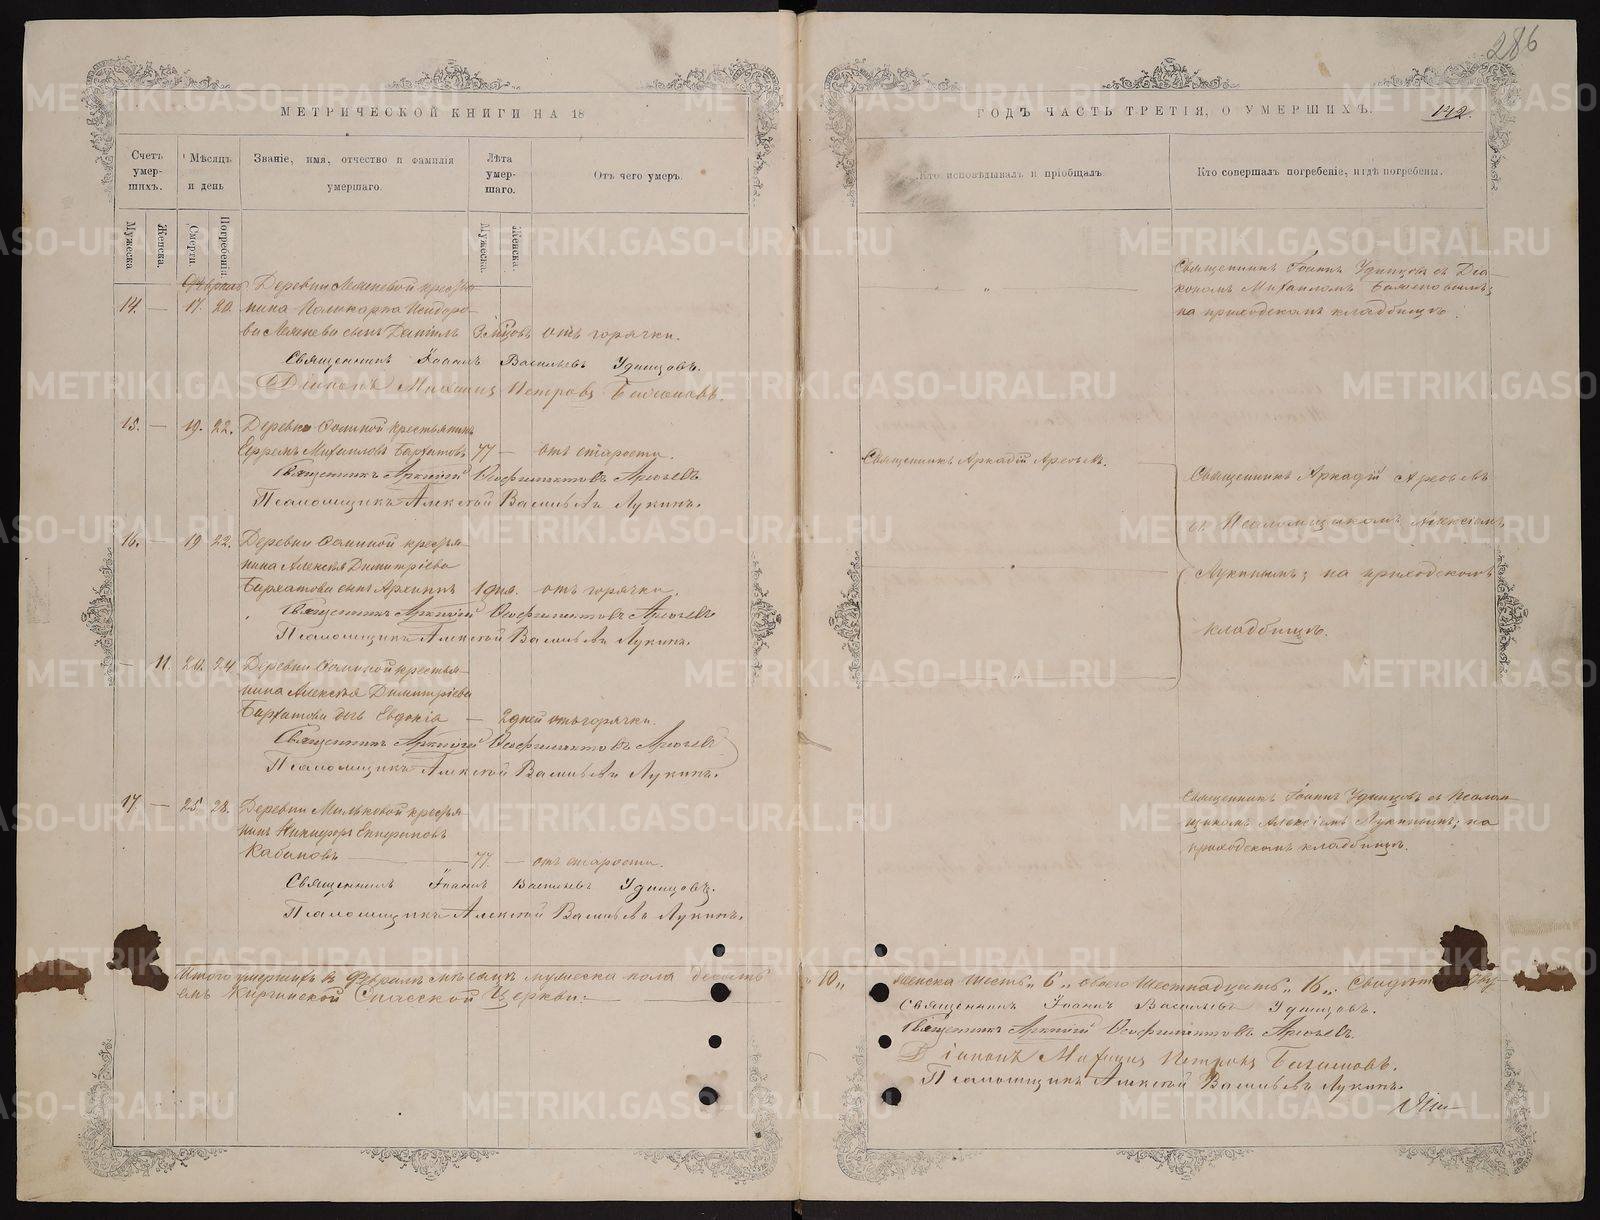 286
МЕТРИЧЕСКОЙ КНИГИ НА 18
ГОДЪ ЧАСТЬ ТРЕТІЯ, О УМЕРШИХЪ.
142.
Счетъ умер-шихъ.
Мѣсяцъ и день
Званіе, имя, отчество и фамилія
умершаго.
Лѣта умер-шаго.
Отъ чего умеръ.
Кто исповѣдывалъ и пріобщалъ
Кто совершалъ погребеніе, и гдѣ погребены.
Мужеска
Женска.
Смерти.
Погребенія.
Мужеска.
Женска.
Февраль
Деревни крестья-
14. — 17. 20. нина Поликарпа Исидоро-
ва сынъ Даніилъ отъ горячки.
Священникъ Іоаннъ Васильевъ Удинцовъ.
Діаконъ Михаилъ Петровъ
Священникъ Іоаннъ Удинцовъ съ Діа-
кономъ Михаиломъ
на приходскомъ кладбищѣ.
15. — 19. 22. Деревни крестьянинъ
Ефремъ Михаиловъ Бархатовъ 77 — отъ старости.
Священникъ Аркадій
Псаломщикъ Алексѣй Васильевъ Лукинъ.
Священникъ Аркадій
Священникъ Аркадій
съ Псаломщикомъ Алексіемъ
Лукинымъ; на приходскомъ
кладбищѣ.
16. — 19 22. Деревни крестья-
нина Алексѣя Димитріева
Бархатова сынъ Архиппъ 1 дня. отъ горячки.
Священникъ Аркадій
Псаломщикъ Алексѣй Васильевъ Лукинъ.
— 11. 20. 24 Деревни крестья-
нина Алексѣя Димитріева
Бархатова дочь Евдокія — 2 дней отъ горячки.
Священникъ Аркадій
Псаломщикъ Алексѣй Васильевъ Лукинъ.
17. — 25 28. Деревни Мильковой крестья-
нинъ Никифоръ
Кабаковъ — 77. — отъ старости.
Священникъ Іоаннъ Васильевъ Удинцовъ.
Псаломщикъ Алексѣй Васильевъ Лукинъ.
Священникъ Іоаннъ Удинцовъ съ Псалом-
щикомъ Алексіемъ Лукинымъ; на
приходскомъ кладбищѣ.
Итого умершихъ въ Февралѣ мѣсяцѣ мужеска пола десять „10„ женска шесть „6„ обоего шестнадцать „16„.
Киргинской Спасской Церкви:
Священникъ Іоаннъ Васильевъ Удинцовъ.
Священникъ Аркадій
Діаконъ Михаилъ Петровъ
Псаломщикъ Алексѣй Васильевъ Лукинъ.
METRIKI.GASO-URAL.RU